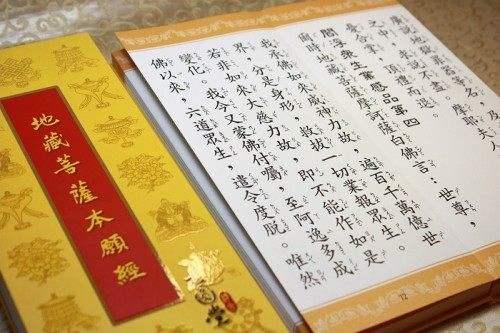 地藏菩薩本願經
廣說地獄罪器等名，及
之中，求說不盡。摩耶夫人
合掌，頂禮而退。
閻浮眾生業感品第四
爾時地藏菩薩摩訶薩白佛言：世尊，
我承佛如來威神力故，遍百千萬億世
界，分是身形，救拔一切業報眾生。
若非如來大慈力故，即不能作如是
變化。我今又蒙佛付囑，至阿逸多成
佛以來，六道眾生，遣令度脫。唯然
12